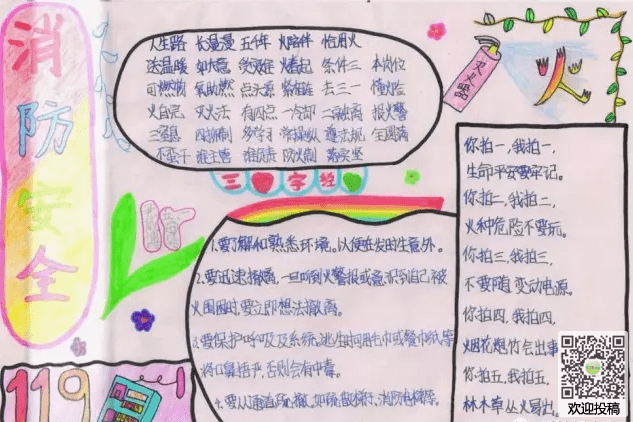 消防安全
人生路 长漫漫 五千年 火陪伴 恰用火
送温暖 如大意 灾难
可燃物 氧助燃 点火源 去三一
火自完 灭火法 有四点 一冷却 二隔离 报火警
三窒息 四抑制 多学习 遵法规 全国安
不蛮干 谁主管 谁负责 防火制 落实
三字经
灭火器
火
1.要了解和熟悉环境。以便在发时生意外。
2.要迅速撤离,一旦听到火警报或意识到自己被
火围困时,要立即想法撤离。
3.要保护呼吸及系统,逃生时用毛巾或餐巾纸等
将口鼻捂严,否则会有中毒。
4.要从通道疏散,如疏散梯子、消防电梯等。
你拍一,我拍一,
生命平安要牢记。
你拍二,我拍二,
火种危险不要玩。
你拍三,我拍三,
不要随变动电源。
你拍四,我拍四,
烟花爆竹会出事
你拍五,我拍五,
林木草丛火易出。
119
欢迎投稿